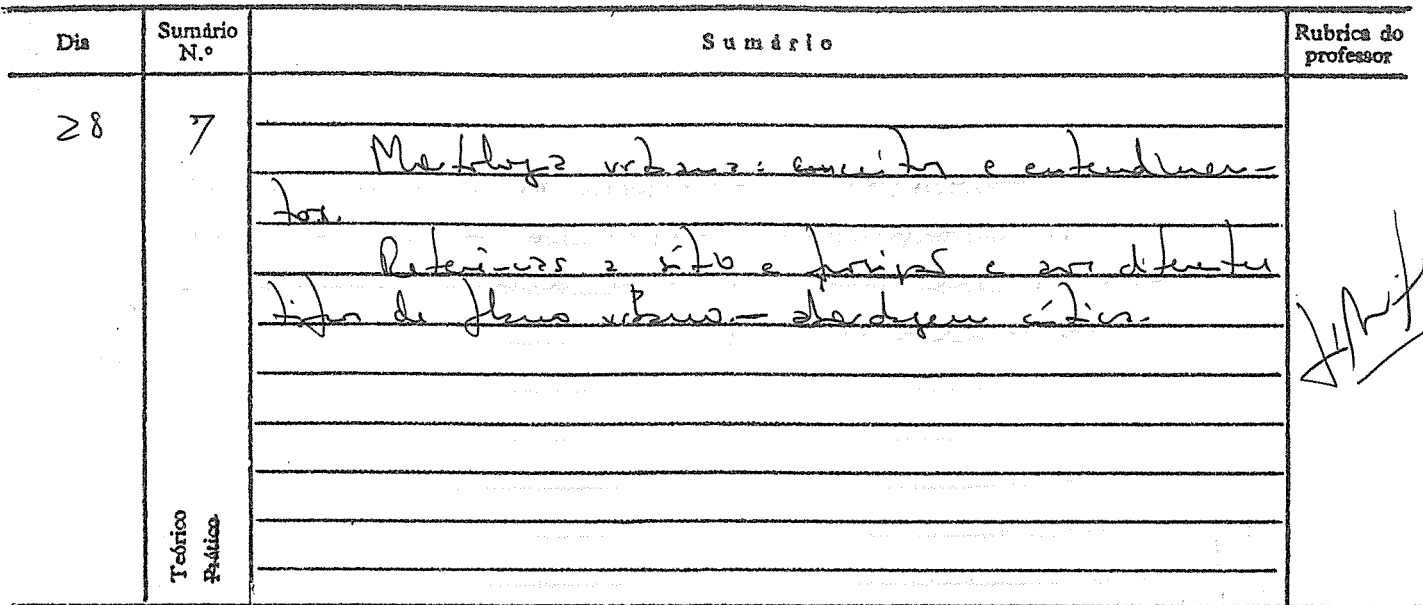 Dia
Sumário N.º
Sumário
Rubrica do professor
28
7
Morfologia urbana: conceitos e entendimen-
tos.
Referências a sítio e posição e aos diferentes
tipos de plano urbano – abordagem crítica.
Teórico
Prático